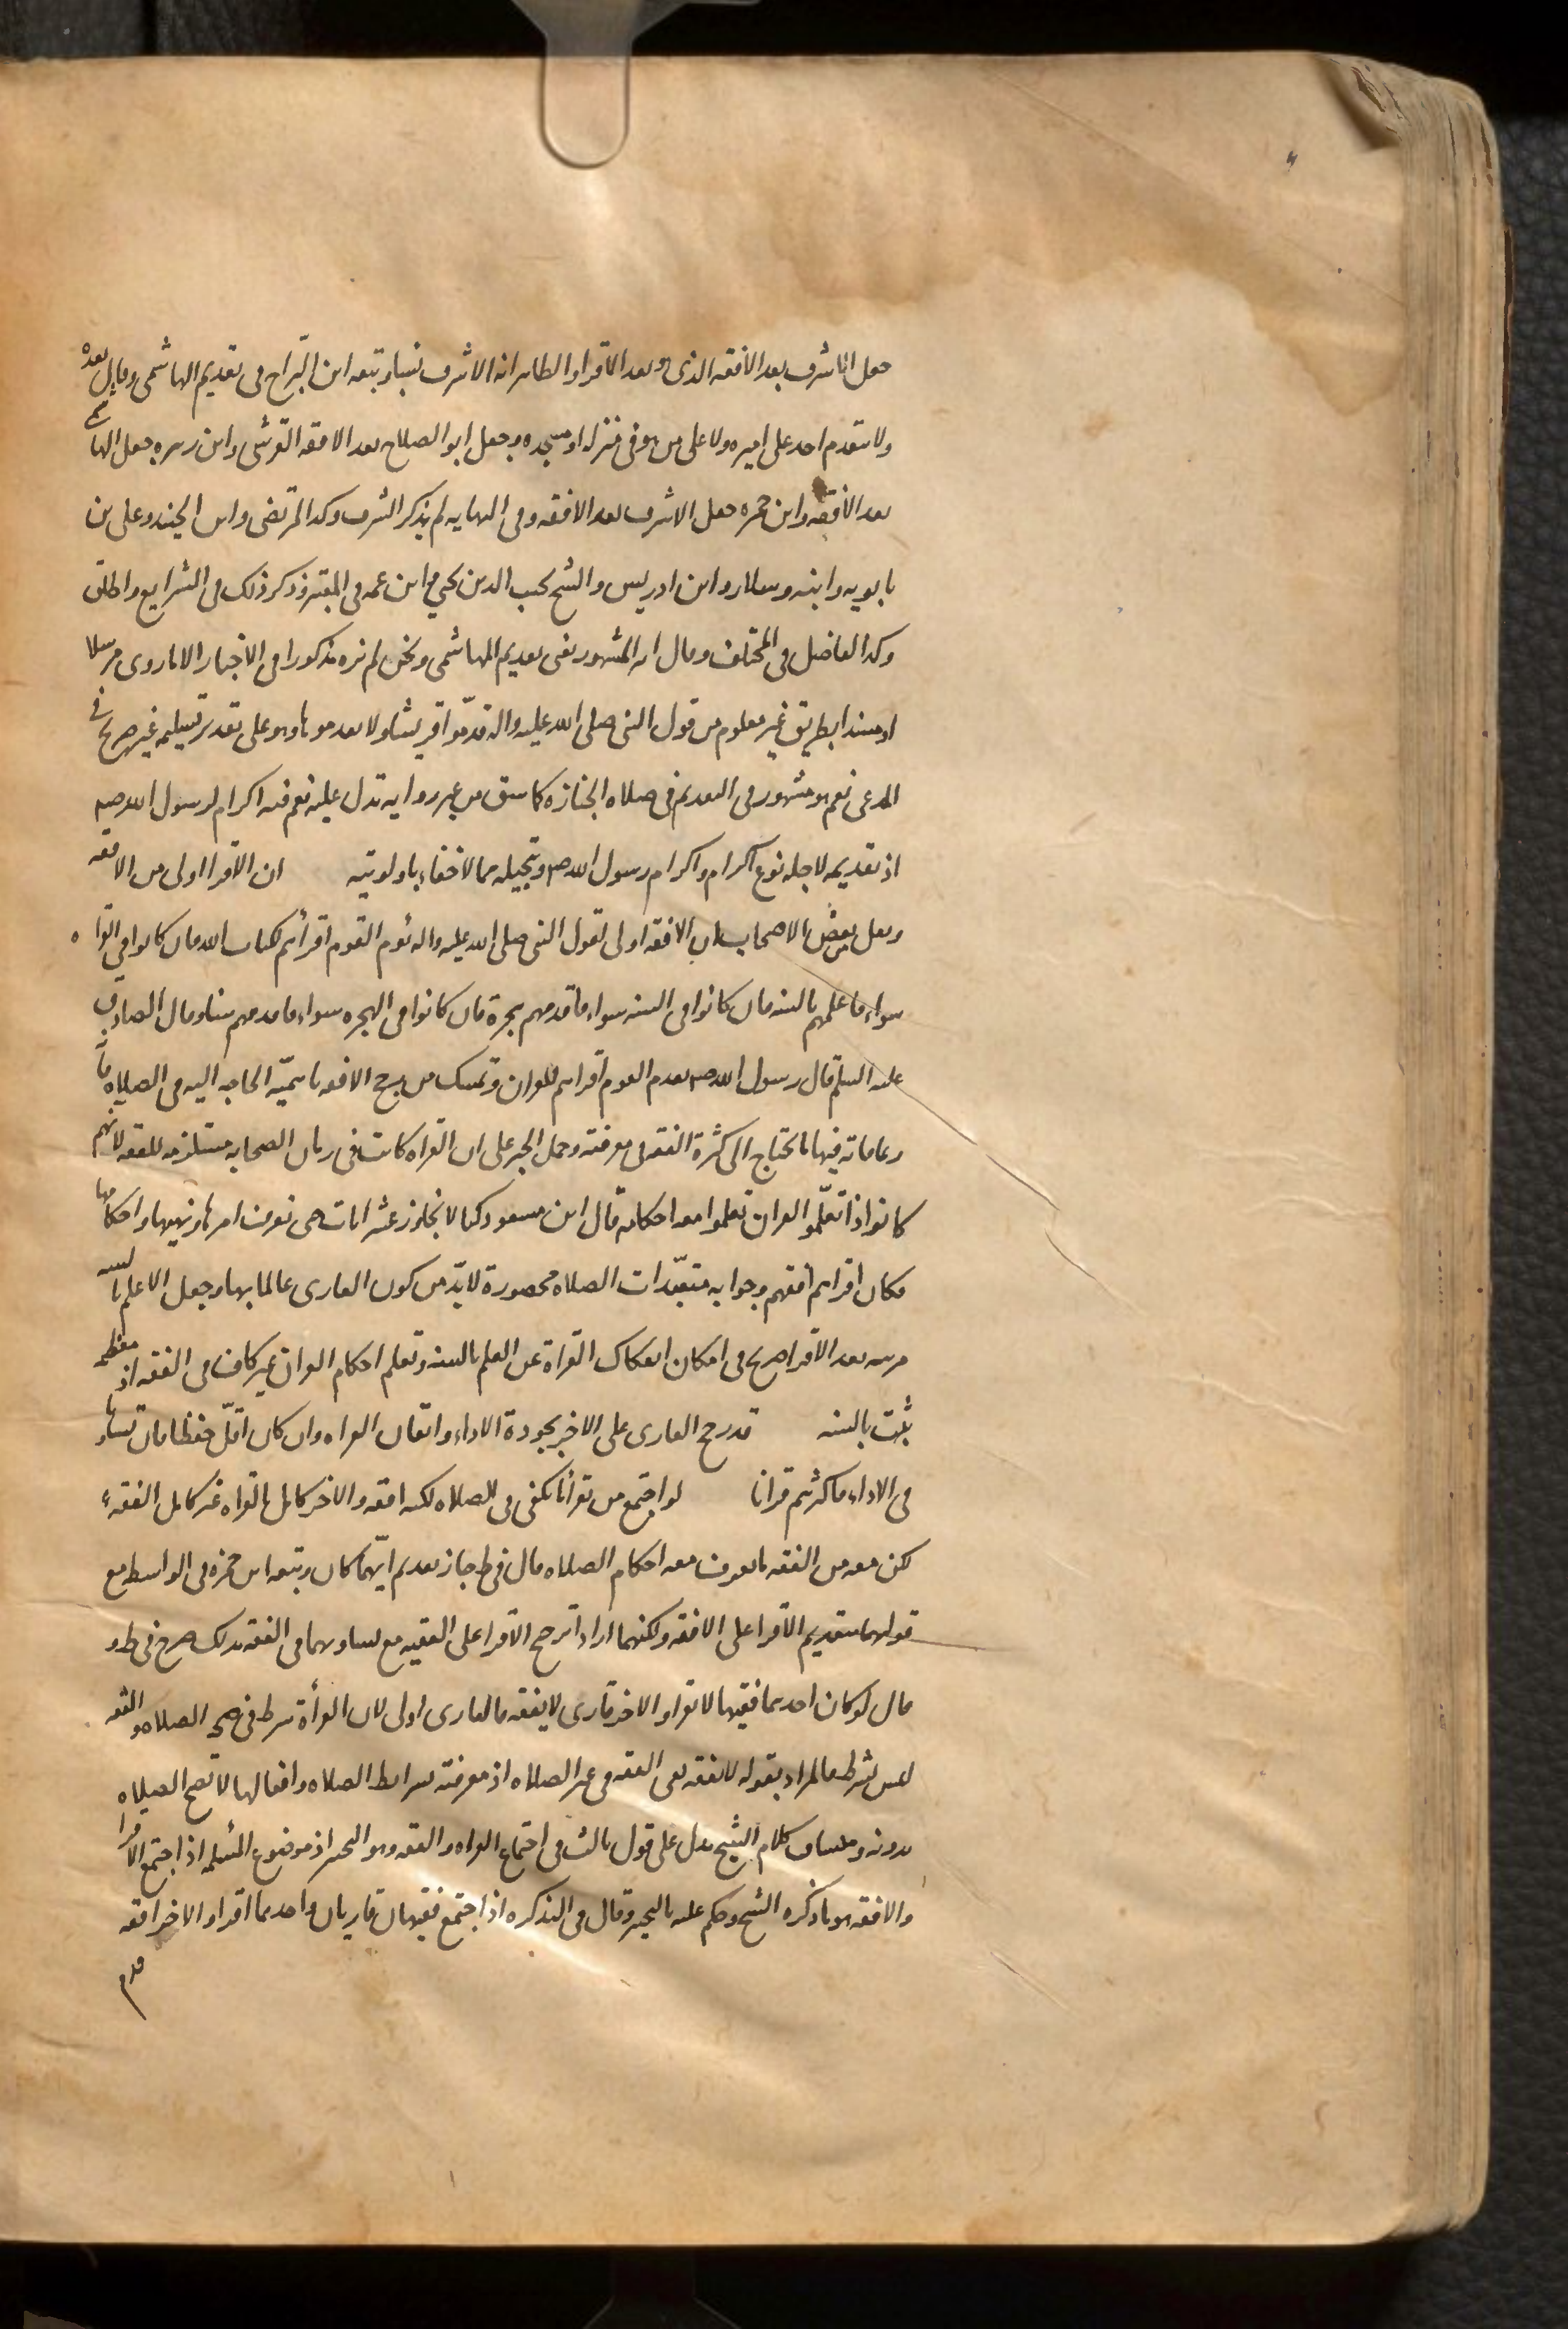 جعل الاشرف بعد الافقه الذى هو بعد الاقرا والظاهر انه الاشرف نسبا وتبعه ابن البراج فى تقديم الهاشمى وقال بعده
ولا يتقدم احد على اميره ولا على من هو فى منزله او مسجده وجعل ابو الصلاح بعد الافقه القرشى وابن زهره جعل الهاشمى
بعد الافقه وابن حمزه جعل الاشرف بعد الافقه وفى النهايه لم يذكر الشرف وكذا المرتضى وابن الجنيد وعلى بن
بابويه وابنه وسلار وابن ادريس والشيخ نجيب الدين يحيى وابن عمه فى المعتبر وذكر ذلك فى الشرايع واطلق
وكذا الفاضل فى المختلف وقال انه المشهور نعنى تقديم الهاشمى ونحن لم نره مذكورا فى الاخبار الا ما روى مرسلا
او مسندا بطريق غير معلوم من قول النبى صلى الله عليه واله قدموا قريشا ولا تقدموها وهو على تقدير تسليمه غير صريح فى
المدعى نعم هو مشهور فى التقديم فى صلاه الجنازه كما سبق من غير روايه تدل عليه نعم فيه اكرام لرسول الله صم
اذ تقديمه لاجله نوع اكرام واكرام رسول الله صم وتبجيله مما لا خفاء باولويته ان الاقرا اولى من الافقه
ونقل عن بعض الاصحاب ان الافقه اولى لقول النبى صلى الله عليه واله يؤم القوم اقرأهم لكتاب الله فان كانوا فى القراه
سواء فاعلمهم بالسنه فان كانوا فى السنه سواء فاقدمهم هجرة فان كانوا فى الهجره سواء فاقدمهم سنا وقال الصادق
عليه السلم قال رسول الله صم يتقدم القوم اقراهم للقران وتمسك من رجح الافقه باهميّه الحاجه اليه فى الصلاه فانّ
وعاماته فيها ما يحتاج الى كثرة الفقه فى معرفته وحمل الخبر على ان القراه كانت فى زمان الصحابه مستلزمه للفقه لانهم
كانوا اذا تعلّموا القران تعلموا معه احكامه قال ابن مسعود كنا لا نتجاوز عشر ايات حتى نعرف امرها ونهيها واحكامها
فكان اقراهم افقههم وجوابه متعبّدات الصلاه محصورة لا بدّ من كون القارى عالما بها وجعل الاعلم بالسنه
مرتبه بعد الاقرا صريح فى امكان انفكاك القراة عن العلم بالسنه وتعلم احكام القران غير كاف فى الفقه اذ معظمه
يثبت بالسنه قد رجح القارى على الاخر بجودة الاداء واتقان القراه وان كان اقلّ حفظا فان تساويا
فى الاداء فاكثرهم قرانا لو اجتمع من يقرأ ما يكفى فى الصلاه لكنه افقه والاخر كامل القراه غير كامل الفقه
لكن معه من الفقه ما يعرف معه احكام الصلاه قال فى ط جاز تقديم ايّهما كان وتبعه ابن حمزه فى الواسطه مع
قولهما بتقديم الاقرا على الافقه ولكنهما ارادا ترجيح الاقرا على الفقيه مع تساويهما فى الفقه بذلك صرح فى ط و
قال لو كان احدهما فقيها لا يقرا والاخر قارى لا يفقه فالقارى اولى لان القرأة شرط فى صحه الصلاه والفقه
ليس بشرط فالمراد بقوله لا يفقه يعنى الفقه فى غير الصلاه اذ معرفته شرائط الصلاه وافعالها لا تصح الصلاه
بدونه وسياق كلام الشيخ يدل على قول ثالث فى اجتماع القراه والفقه وهو التخيير اذ موضوع المسئله اذا اجتمع الاقرا
والافقه هو ما ذكره الشيخ وحكم عليه بالتخيير وقال فى التذكره اذا اجتمع فقيهان قاريان واحدهما اقرا والاخر افقه
قدم